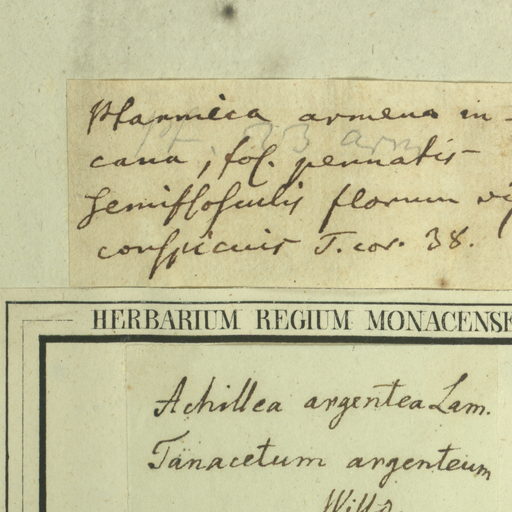 Ptarmica armena in-
cana, fol. pennatis
semiflosculis florum vi
conspicuis T. cor. 38.
HERBARIUM REGIUM MONACENSE
Achillea argentea Lam.
Tanacetum argenteum
Willd.